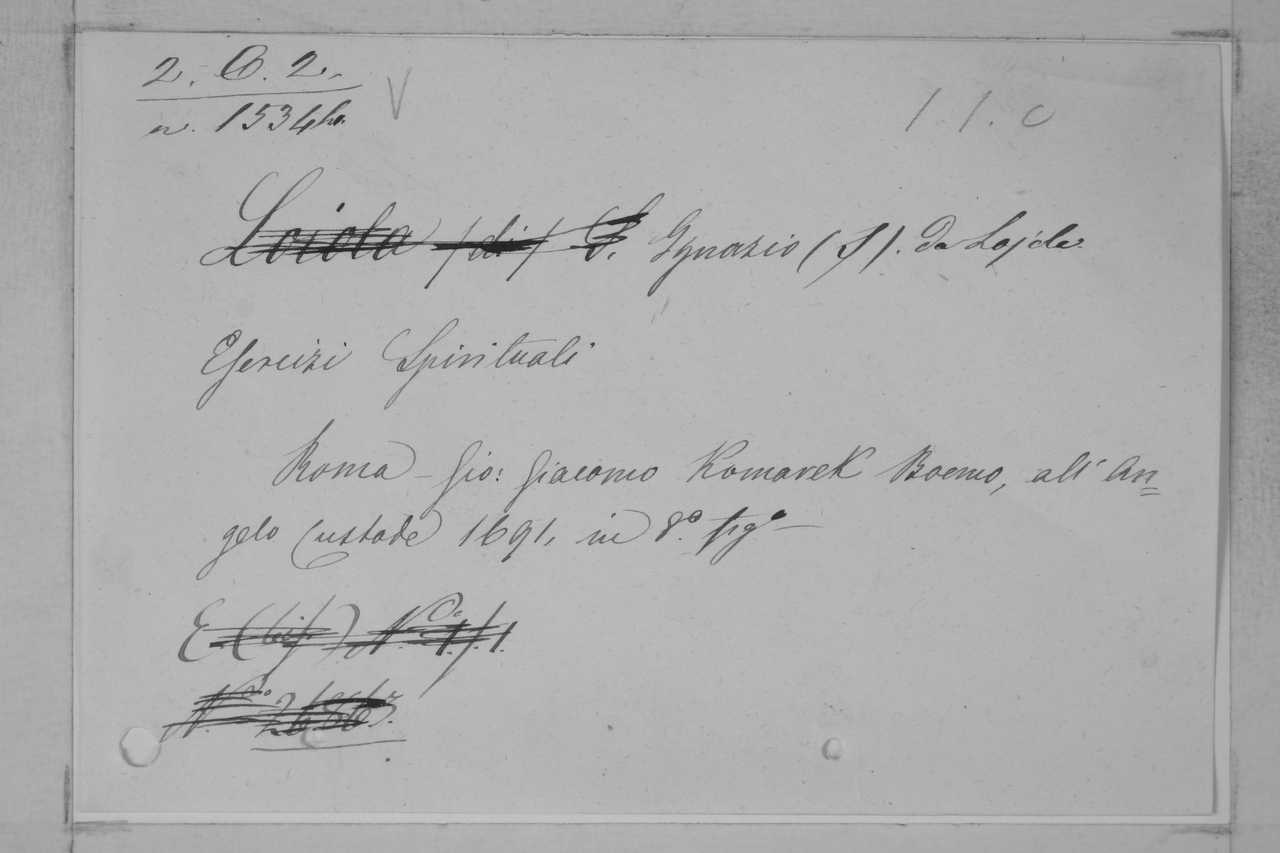 2. C. 2.
V
1. 1. c
n. 1534
Loiola (di) S. Ignazio (S). da Lojola
Esercizi Spirituali
Roma - Gio: Giacomo Komarek Boemo, all' An=
gelo Custode 1691, in 8º. figº
E (bis) Nº. 1.
Nº.